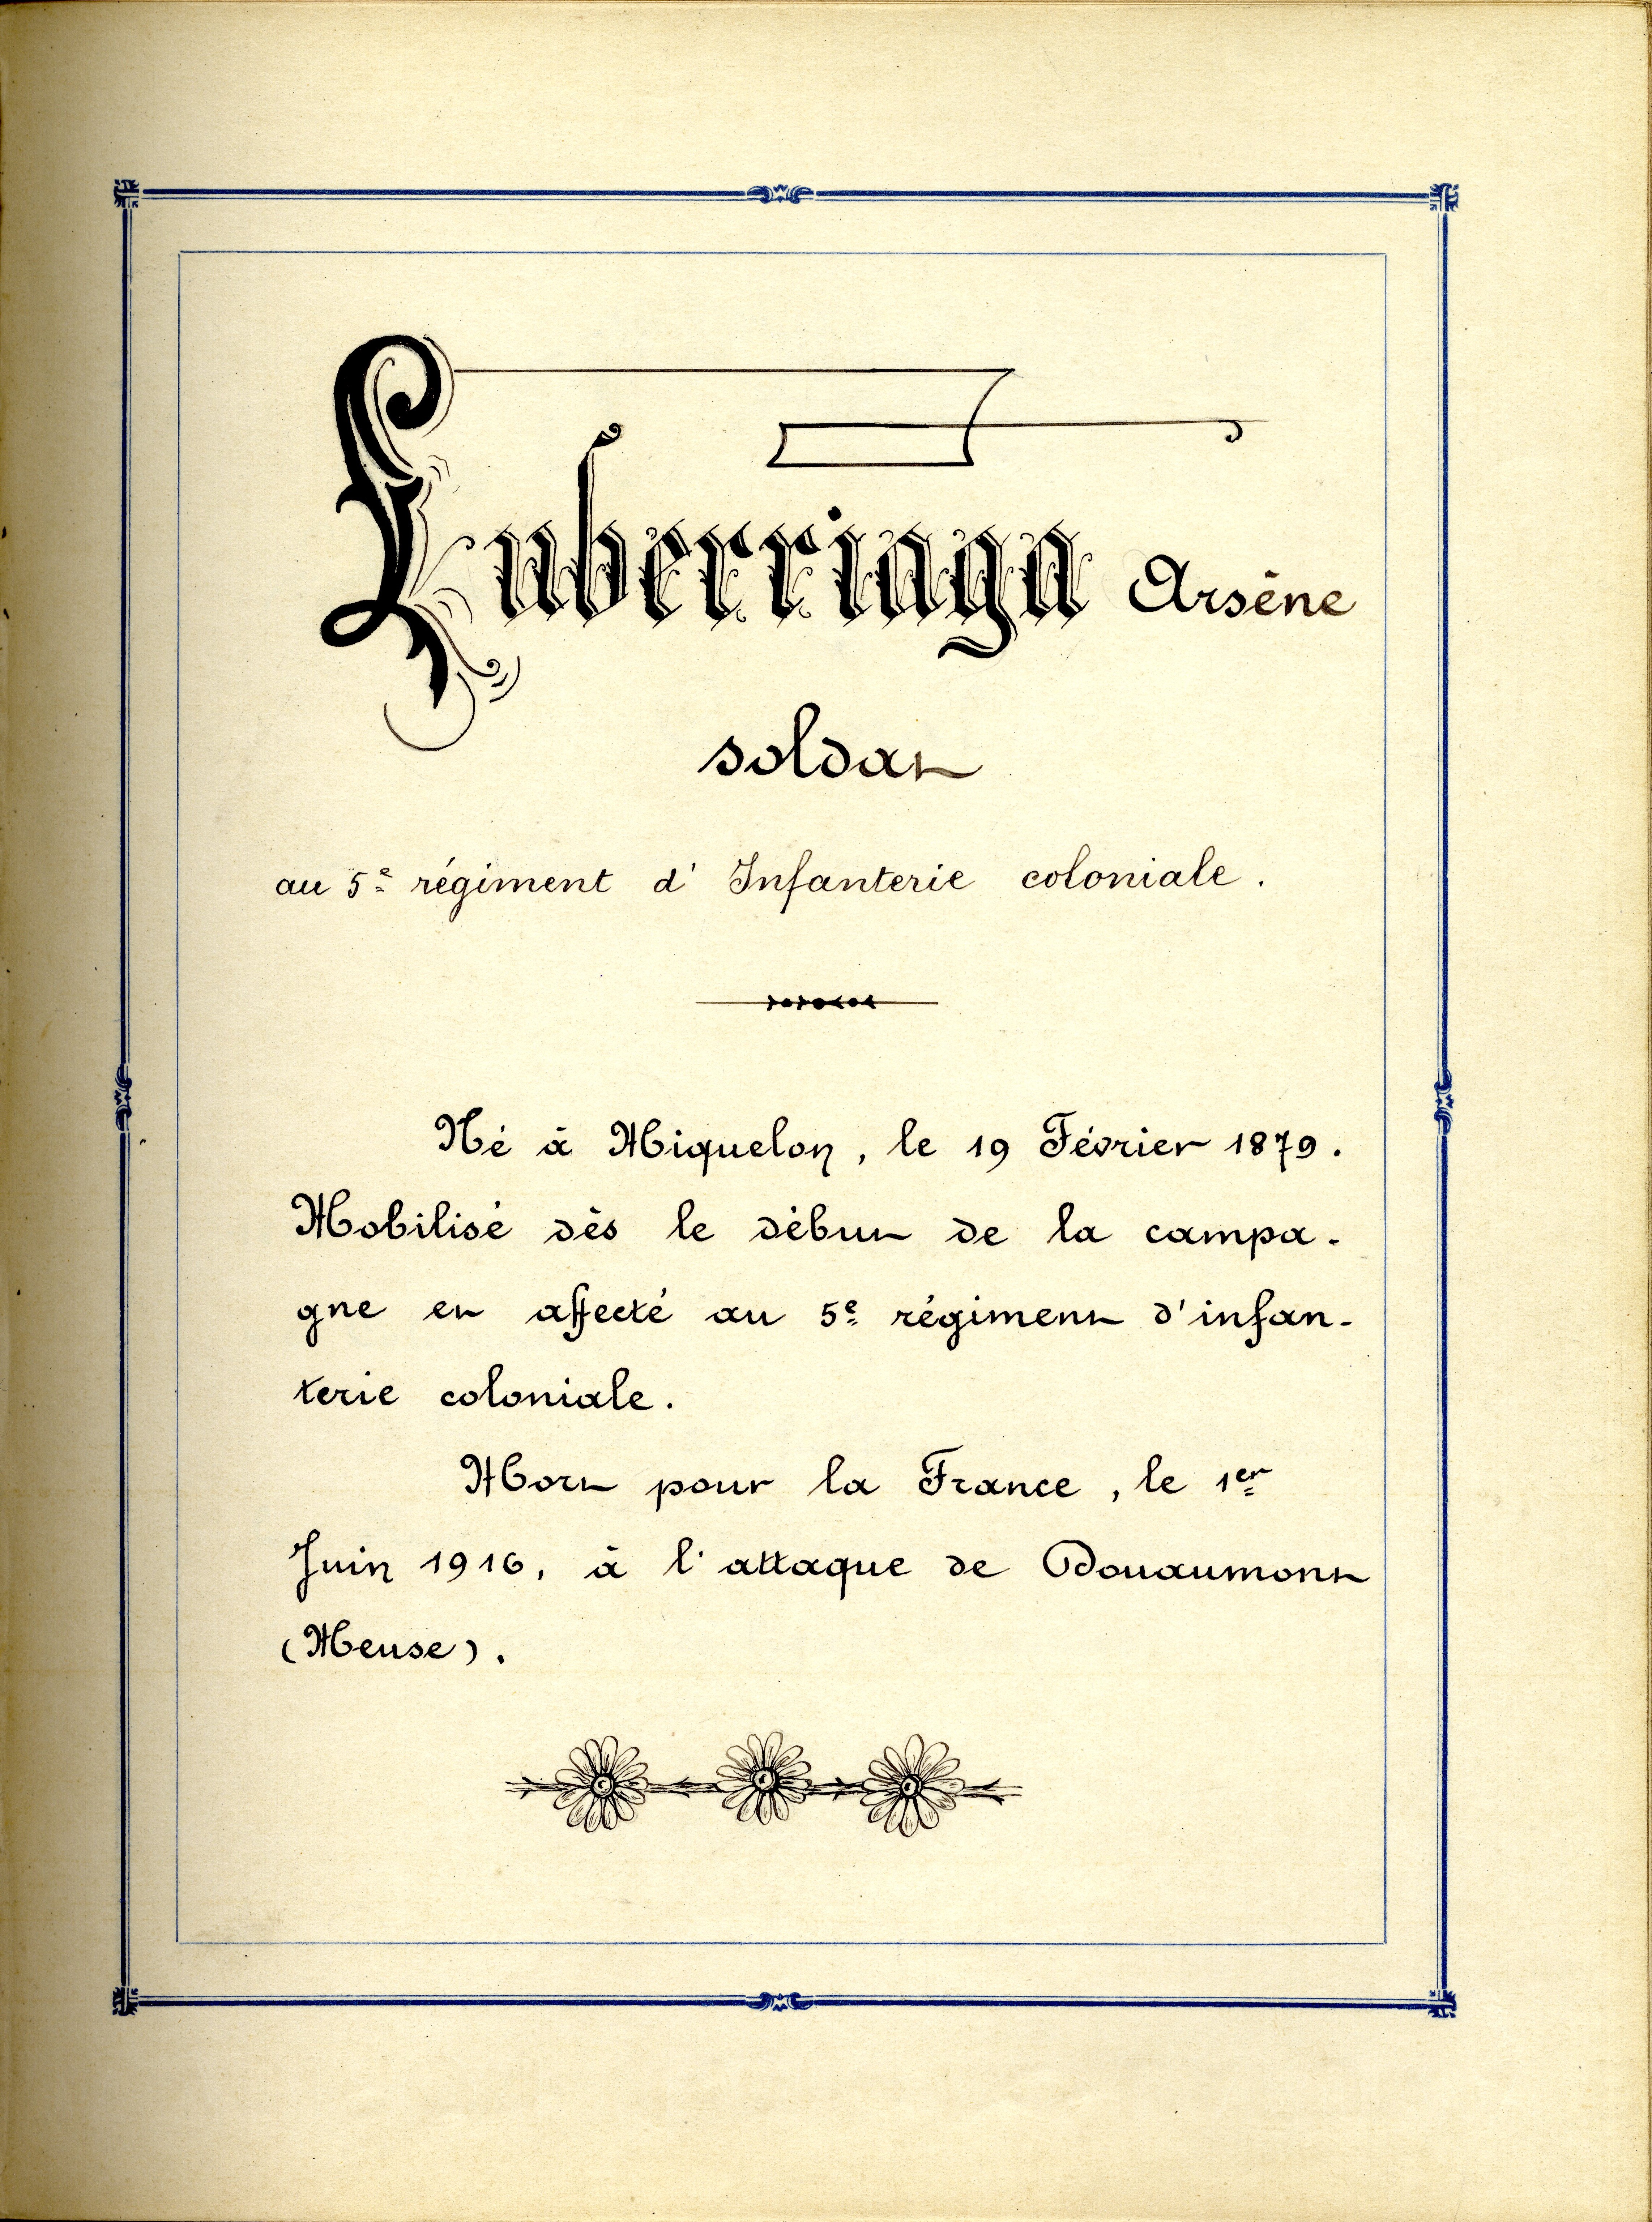 Luberriaga Arsène
soldat
au 5e régiment d'Infanterie coloniale.
Né à Miquelon, le 19 Février 1879.
Mobilisé dès le début de la campa-
gne et affecté au 5e régiment d'infan-
terie coloniale.
Mort pour la France, le 1er
Juin 1916, à l'attaque de Douaumont
(Meuse).